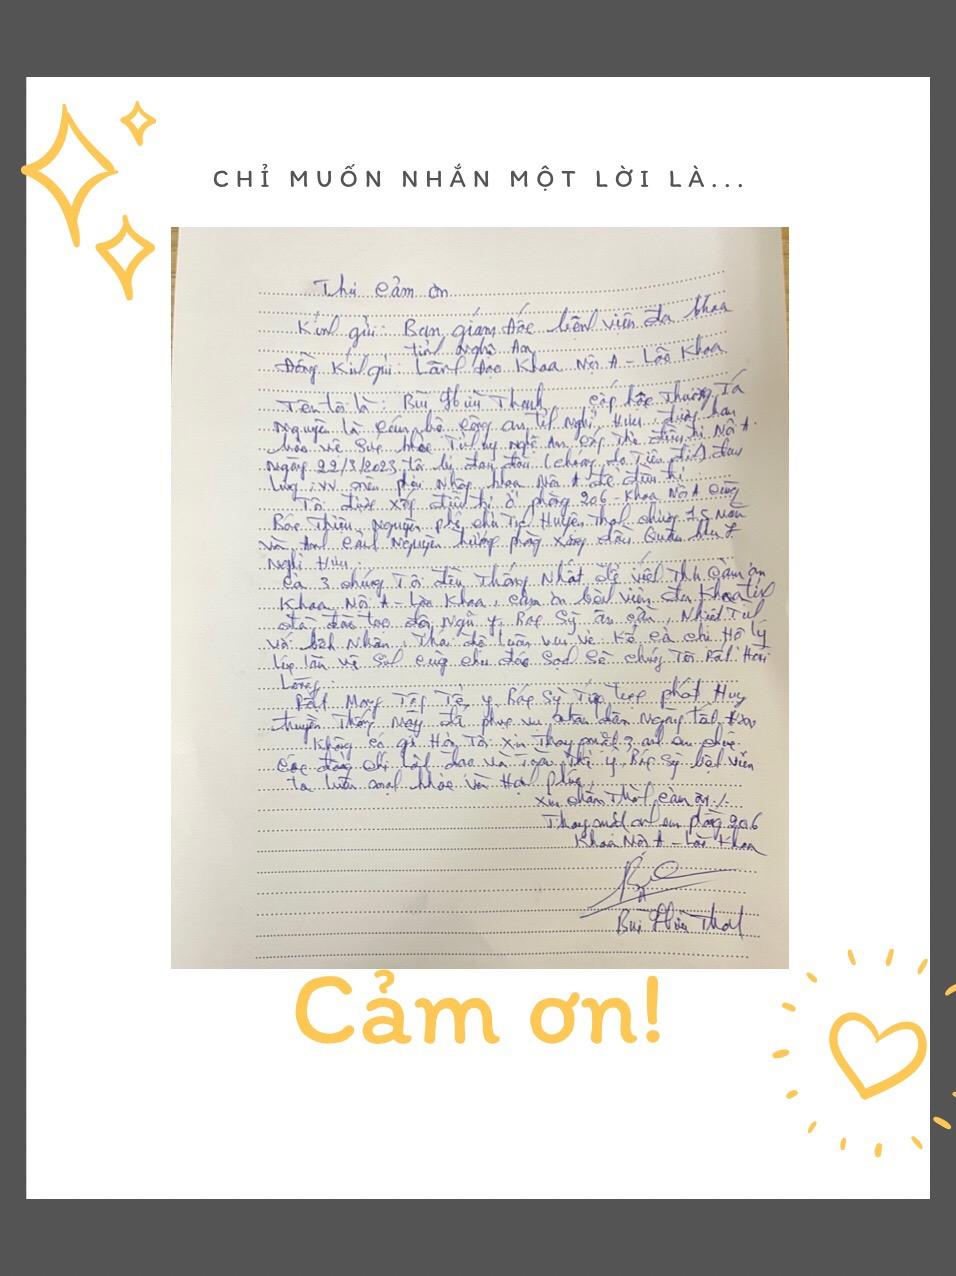 CHỈ MUỐN NHẮN MỘT LỜI LÀ...
Thư cảm ơn
Kính gửi: Ban giám đốc bệnh viện đa khoa
tỉnh Nghệ An
Đồng Kính gửi: Lãnh đạo Khoa Nội A - Lão Khoa
Tên tôi là: Bùi Hữu Thanh cấp bậc Thượng Tá
Nguyên là cán bộ công an tỉnh Nghỉ Hưu được ban
bảo vệ Sức khỏe Tỉnh ủy Nghệ An cấp thẻ điều trị Nội A.
Ngày 22/3/2023 tôi bị đau đầu (chóng do Tiền đình) đau
lưng .vv nên phải Nhập khoa Nội A để điều trị
Tôi được xếp điều trị ở phòng 206 Khoa Nội A cùng
Bác Thiều Nguyên phó chủ tịch Huyện 75
và Anh Cảnh Nguyên trưởng phòng xăng dầu Quân khu 4
Nghỉ Hưu.
Cả 3 chúng Tôi đều Thống Nhất để viết Thư Cảm ơn
Khoa Nội A - Lão Khoa, cảm ơn bệnh viện đa Khoa tỉnh
đã đào tạo đội Ngũ y Bác Sỹ ân cần, Nhiệt Tình
với bệnh Nhân, Thái độ luôn vui vẻ. Kể cả chị Hộ lý
làm vệ Sinh cũng chu đáo Sạch Sẽ chúng Tôi Rất Hài
Lòng.
Rất Mong Tập Thể y Bác Sỹ Tiếp tục phát Huy
truyền Thống Này để phục vụ nhân dân Ngày tốt hơn
Không có gì Hơn Tôi xin Thay mặt 3 anh em chúc
Các đồng chí lãnh đạo và Toàn Thể y Bác Sỹ bệnh viện
ta luôn mạnh khỏe và Hạnh phúc.
Xin chân Thành cảm ơn./.
Thay mặt anh em phòng 206
Khoa Nội A - Lão Khoa
Bùi Hữu Thanh
Cảm ơn!